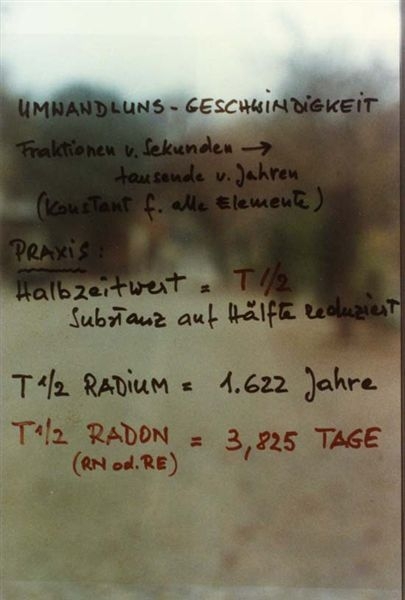 UMWANDLUNS-GESCHWINDIGKEIT
Fraktionen v. Sekunden →
tausende v. Jahren
(Konstant f. alle Elemente)
PRAXIS:
Halbzeitwert = T 1/2
Substanz auf Hälfte reduziert
T 1/2 RADIUM = 1.622 Jahre
T 1/2 RADON = 3,825 TAGE
(RN od. RE)